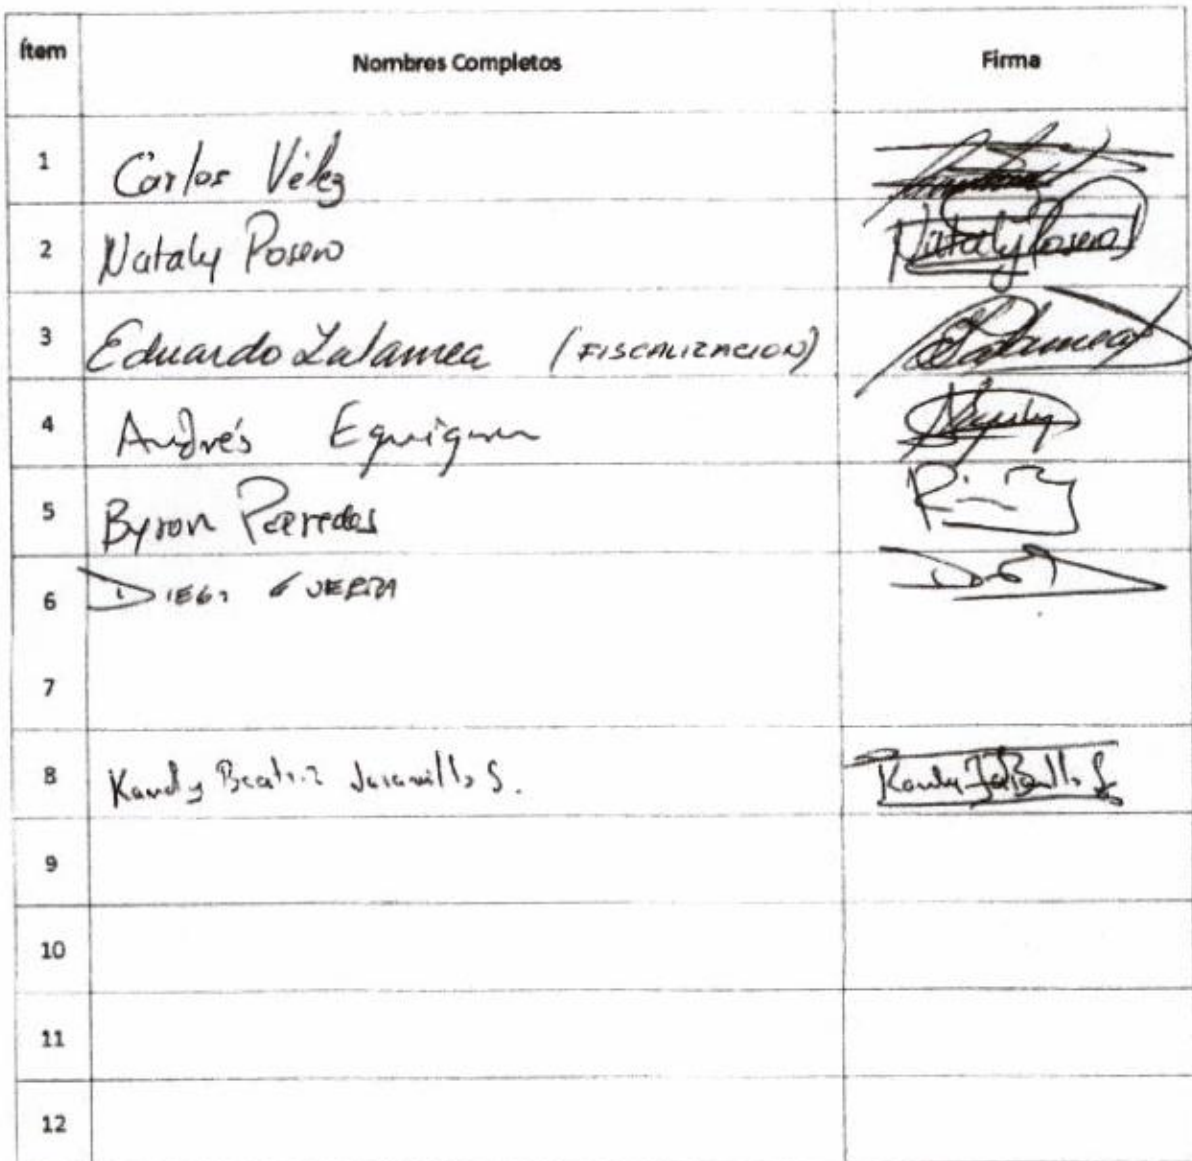 Ítem Nombres Completos Firma
1 Carlos Vélez
2 Nataly Posero Nataly Posero
3 Eduardo Zalamea (FISCALIZACION) EZalamea
4 Andrés Eguiguren
5 Byron Paredes
6 DIEGO GUERRA
7
8 Kandy Beatriz Jaramillo S. Kandy Jaramillo S.
9
10
11
12